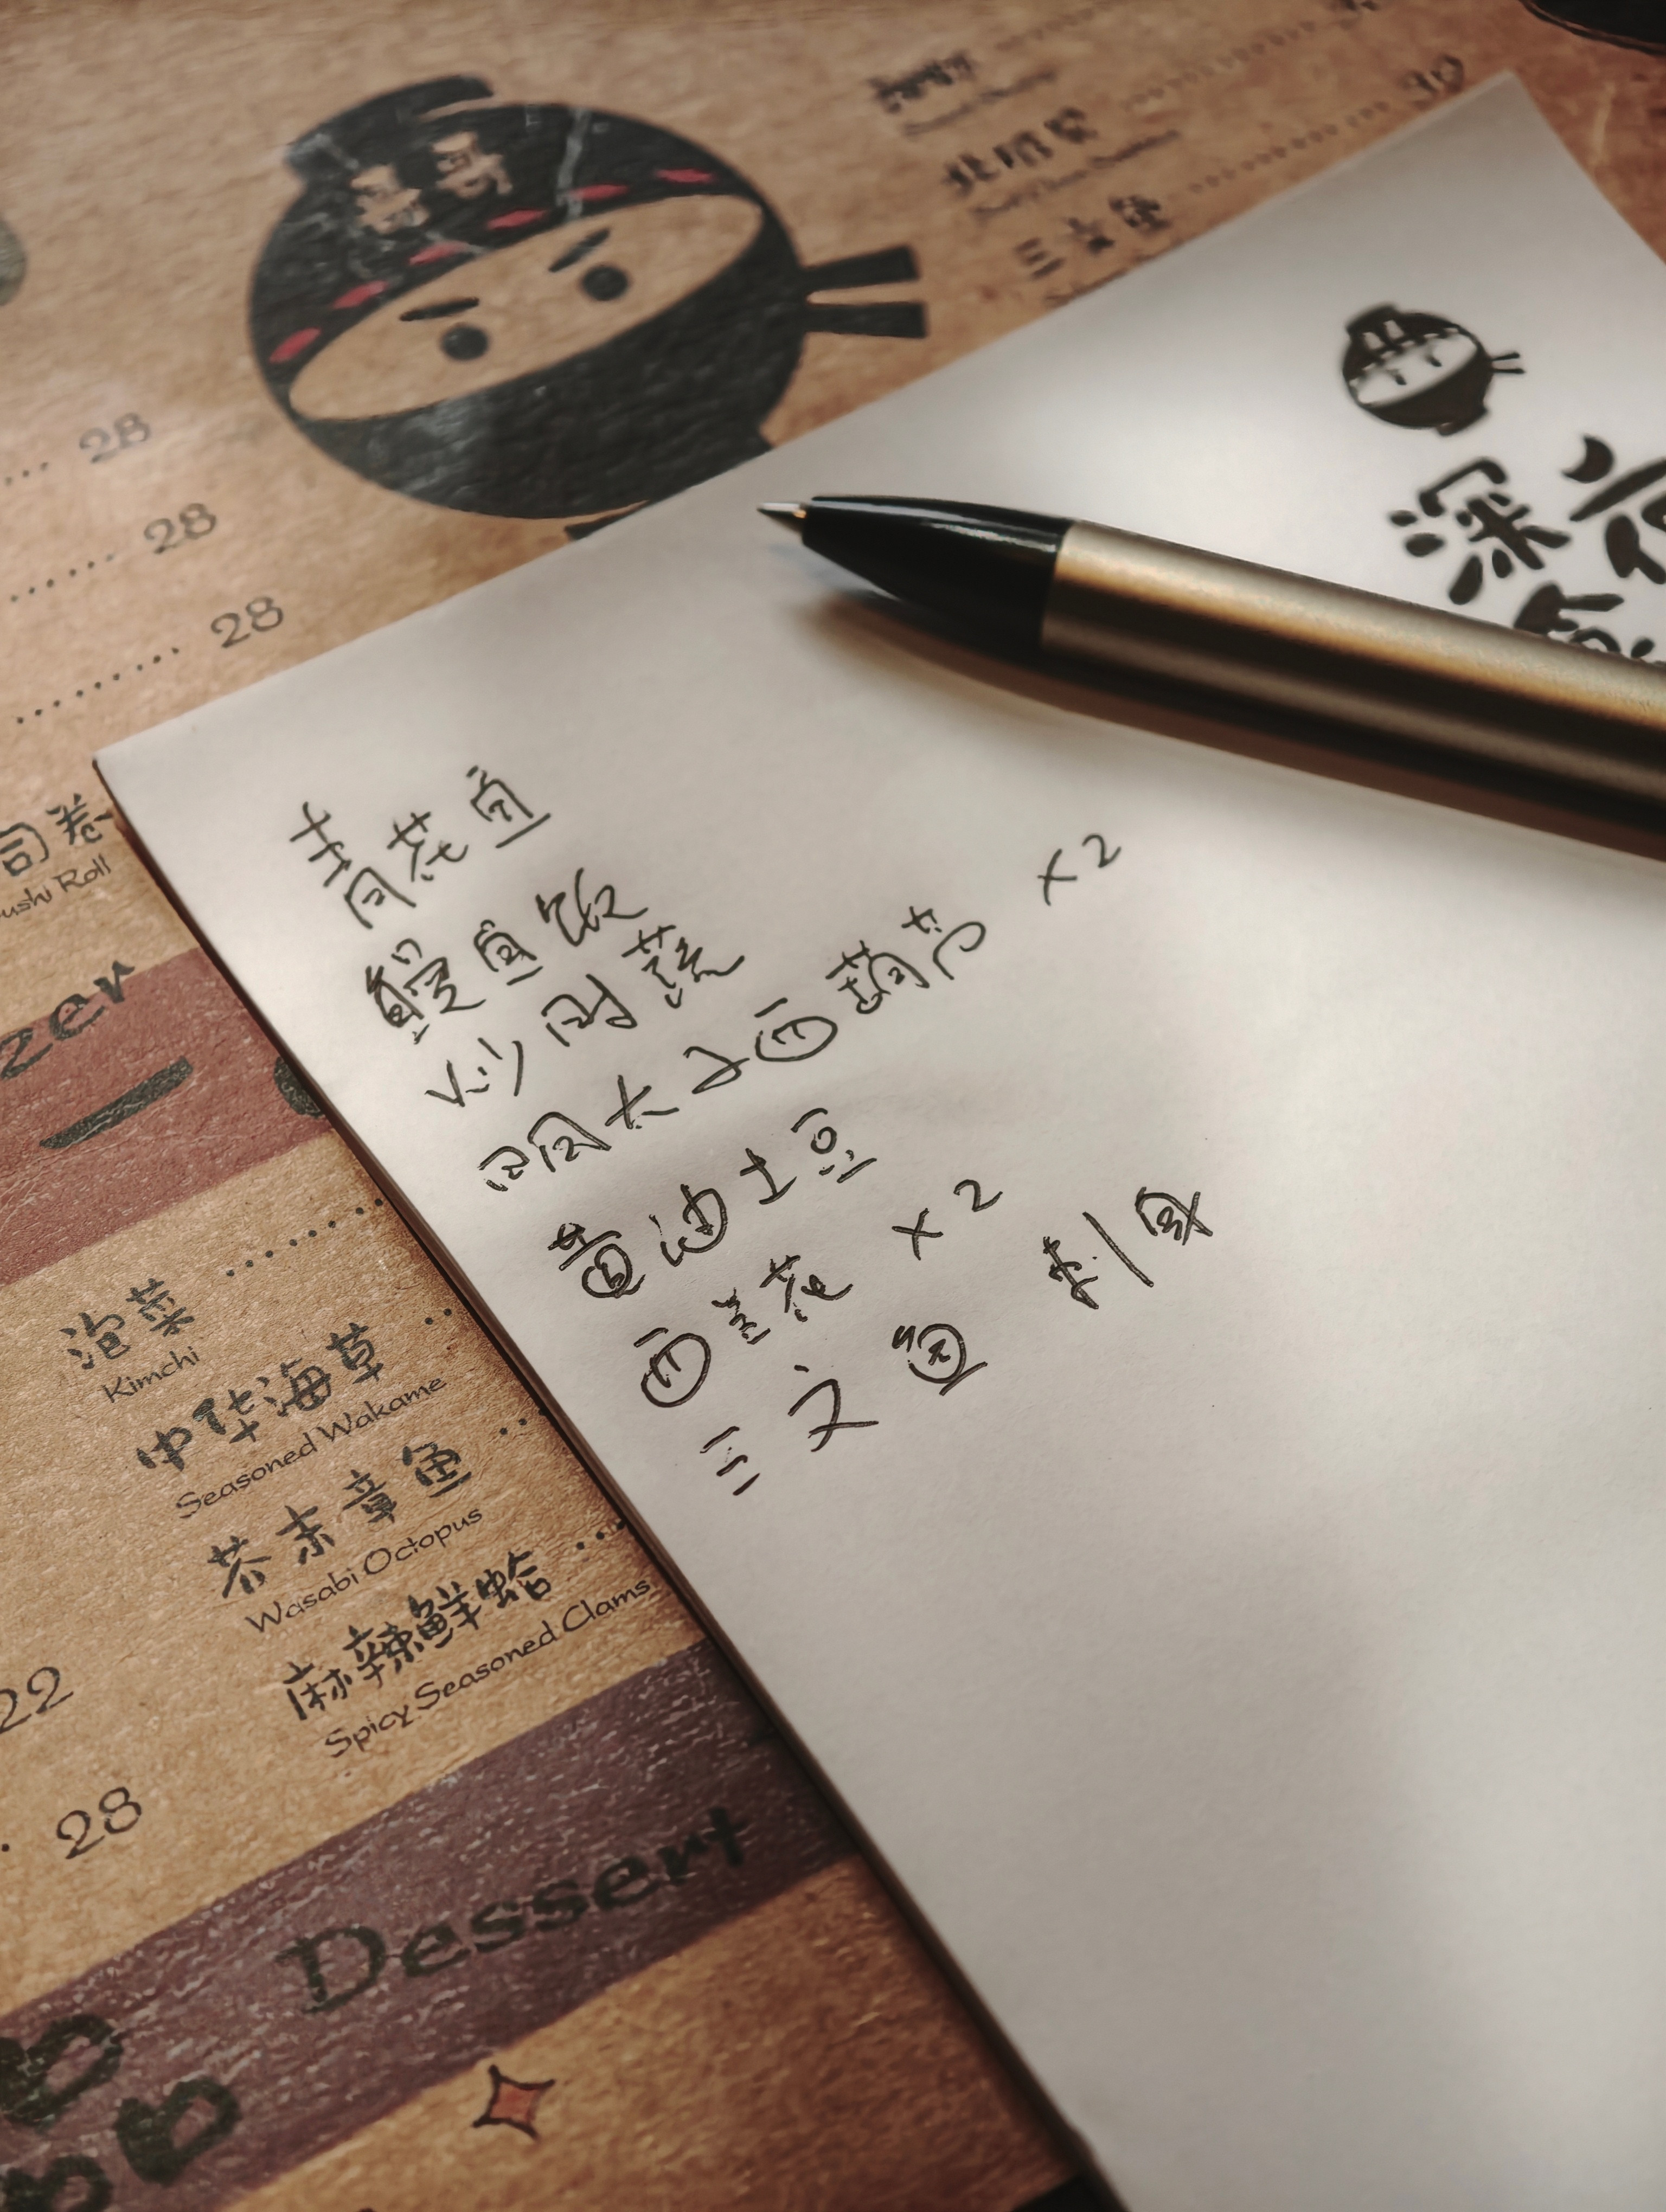 青花鱼
鳗鱼饭
炒时蔬
明太子西葫芦 x2
黄油土豆
西兰花 x2
三文鱼 刺身
深夜
28
28
28
30
三文鱼
司卷
ushi Roll
zer
泡菜
Kimchi
中华海草
Seasoned Wakame
芥末章鱼
Wasabi Octopus
麻辣鲜蛤
Spicy Seasoned Clams
22
28
Dessert